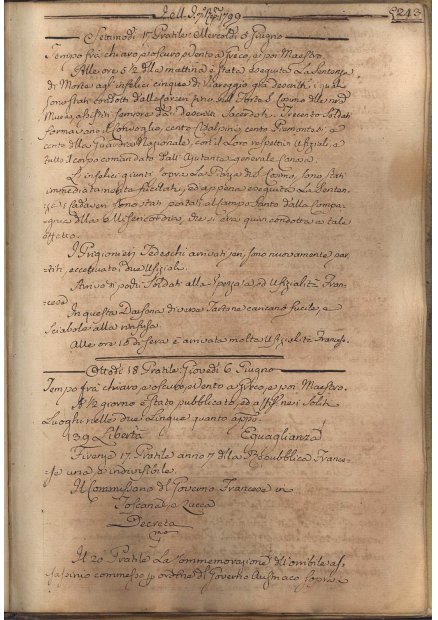 1799
243
Settimodi 17 Pratile: Mercoldi 5 Giugno
Tempo frà chiaro, e oscuro, e vento a Greco, e poi Maestro.
Alle ore 5 1/2 della mattina è stata eseguita la Sentenza
di Morte agl'infelici cinque di Viareggio già descritti, i quali
sono stati condotti dalle Carceri fino sul Forte di Cosmo alle
Mura, assistiti sempre da Sacerdoti. Trecento Soldati
formavano il Convoglio, cento Cisalpini, cento Piemontesi, e
cento della Guardia Nazionale, con i loro respettivi Ufiziali, e
tutto il corpo comandato dall'Ajutante generale
Gl'infelici giunti sopra la Piazza del Cosmo, sono stati
immediatamente fucilati, ed appena eseguita la Senten-
za i Cadaveri sono stati portati al Campo Santo dalla Compa-
gnia della Misericordia, che si era quivi condotta a tale
effetto.
I Prigionieri Tedeschi arrivati jeri sono nuovamente par-
titi, eccettuato i due Ufiziali.
Arrivo di pochi Soldati alla spezzata ed Ufizialità Fran-
cese
In questa Darsena di varie Tartane cancano fucili, e
Sciabole alla rinfusa
Alle ore di sera è arrivata molta Ufizialità Francese.
Ottodi 18 Pratile: Giovedi 6 Giugno
Tempo frà chiaro, e oscuro, e vento a Greco, e poi Maestro.
A 1/2 giorno è stato pubblicato, ed affisso nei soliti
Luoghi nelle due Lingue quanto appº.
139 Libertà Eguaglianza
Firenze 17. Pratile anno 7 della Repubblica France-
se una, e indivisibile.
Il Commissario del Governo Francese in
Toscana, e Lucca
Decreta
Il 20 Pratile la commemorazione dell'orribile as-
sassinio commesso p ordine del Governo Austriaco sopra